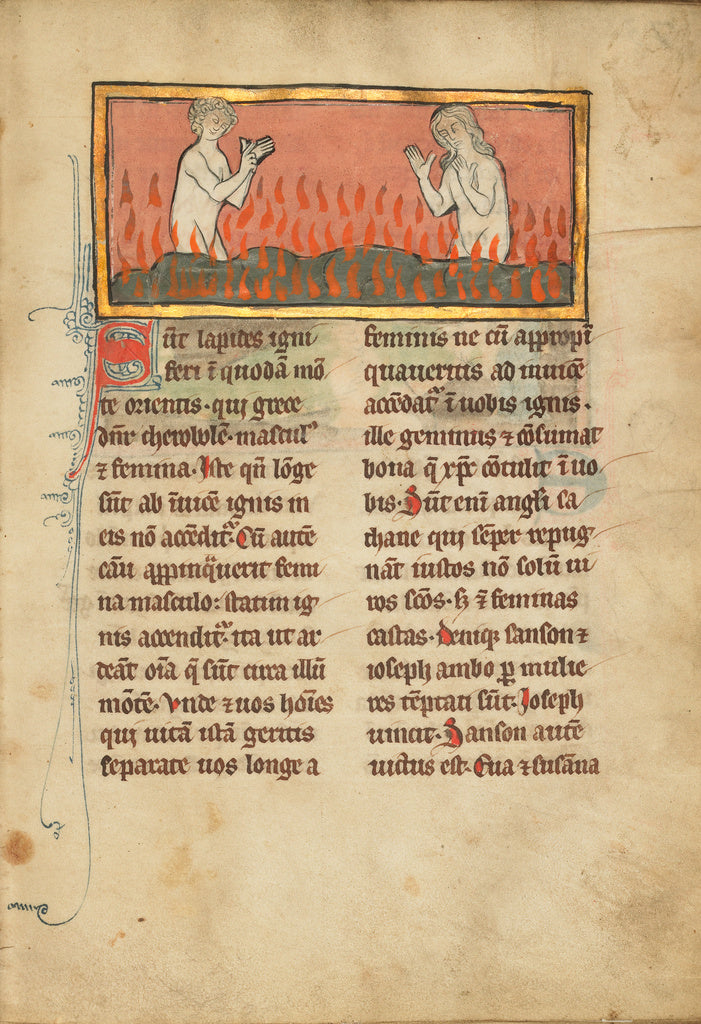 Sūt lapides igni
feri ī quodā mō
te orientis · qui grece
dn̄r cherobolē · mascul᷒
⁊ femina · Iste qn̄ lōge
sūt ab īuicē ignis in
eis nō accēdit᷑ · Cū autē
cāu appinq̄uerit femi
na masculo : statim ig
nis accendit᷑ · ita ut ar
deāt oīa q̄ sūt circa illū
mōtē · Vnde ⁊ uos hoīes
qui uitā istā geritis
separate uos longe a
feminis ne cū appropī
quaueritis ad inuicē
accēdat᷑ ī uobis ignis ·
ille geminus ⁊ cōsumat
bona q̄ xp̄c cōtulit ī uo
bis · Sūt enī angłi sa
thane qui sēper repug
nāt iustos nō solū ui
ros scōs · ꜩ ⁊ feminas
castas · Deniq; sanson ⁊
ioseph ambo ꝑ mulie
res tēptati sūt · Ioseph
uincit · Sanson autē
uictus est · Eua ⁊ susāna